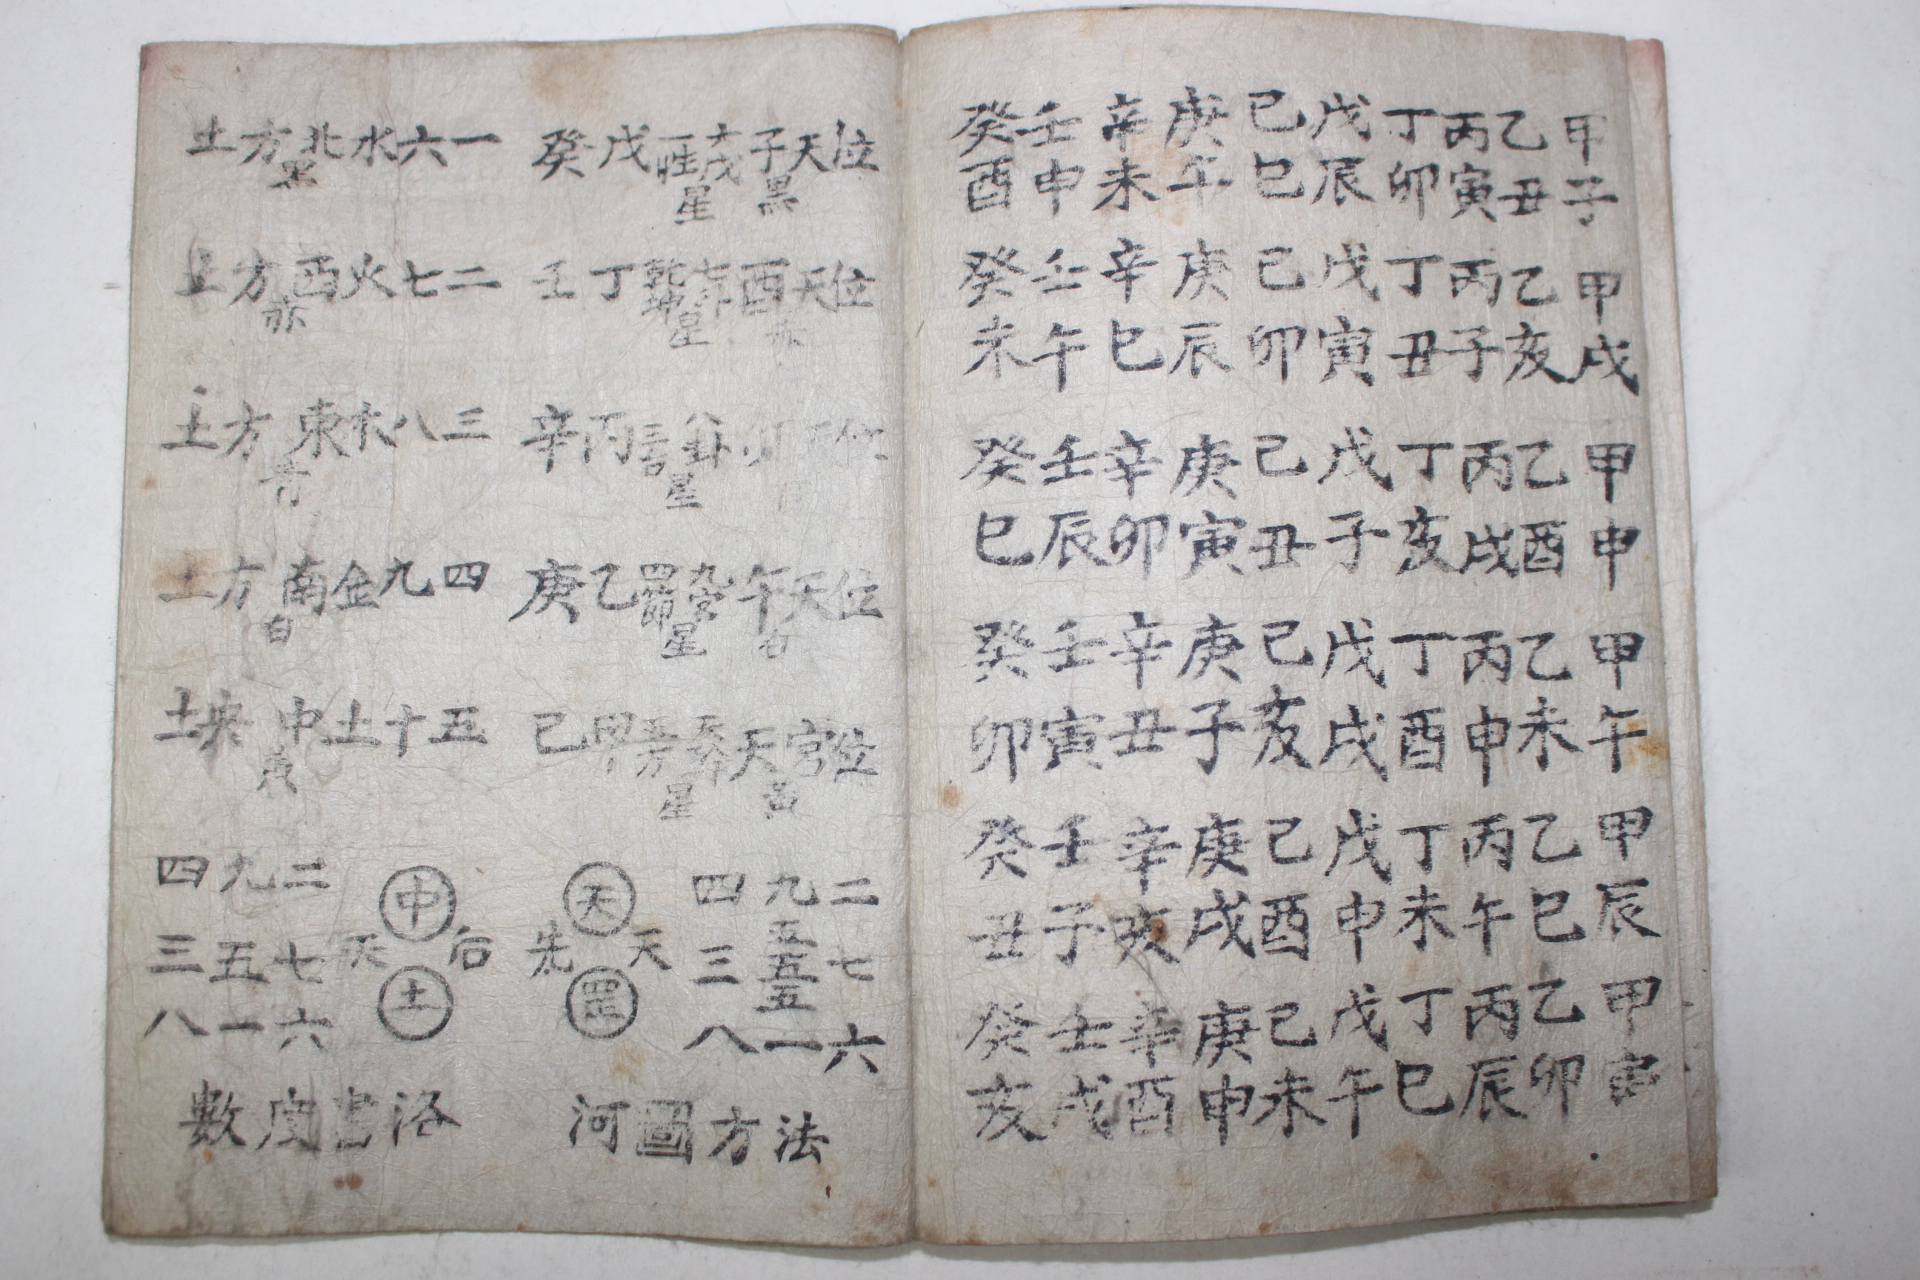 甲子 乙丑 丙寅 丁卯 戊辰 己巳 庚午 辛未 壬申 癸酉
甲戌 乙亥 丙子 丁丑 戊寅 己卯 庚辰 辛巳 壬午 癸未
甲申 乙酉 丙戌 丁亥 戊子 己丑 庚寅 辛卯 壬辰 癸巳
甲午 乙未 丙申 丁酉 戊戌 己亥 庚子 辛丑 壬寅 癸卯
甲辰 乙巳 丙午 丁未 戊申 己酉 庚戌 辛亥 壬子 癸丑
甲寅 乙卯 丙辰 丁巳 戊午 己未 庚申 辛酉 壬戌 癸亥
位天子 星 戊癸
黑
一六水北方土
黑
位天酉 乾坤星 丁壬
赤
二七火西方土
赤
卦星 丙辛
三八木東方土
青
位天午 九宮星 乙庚
白
四九金南方土
白
位宮天 星 甲己
黃
五十土中央土
黃
二九四
七五五五三
六一八
天罡
先天
中土
后天
二九四
七五三
六一八
河圖方法
洛書度數